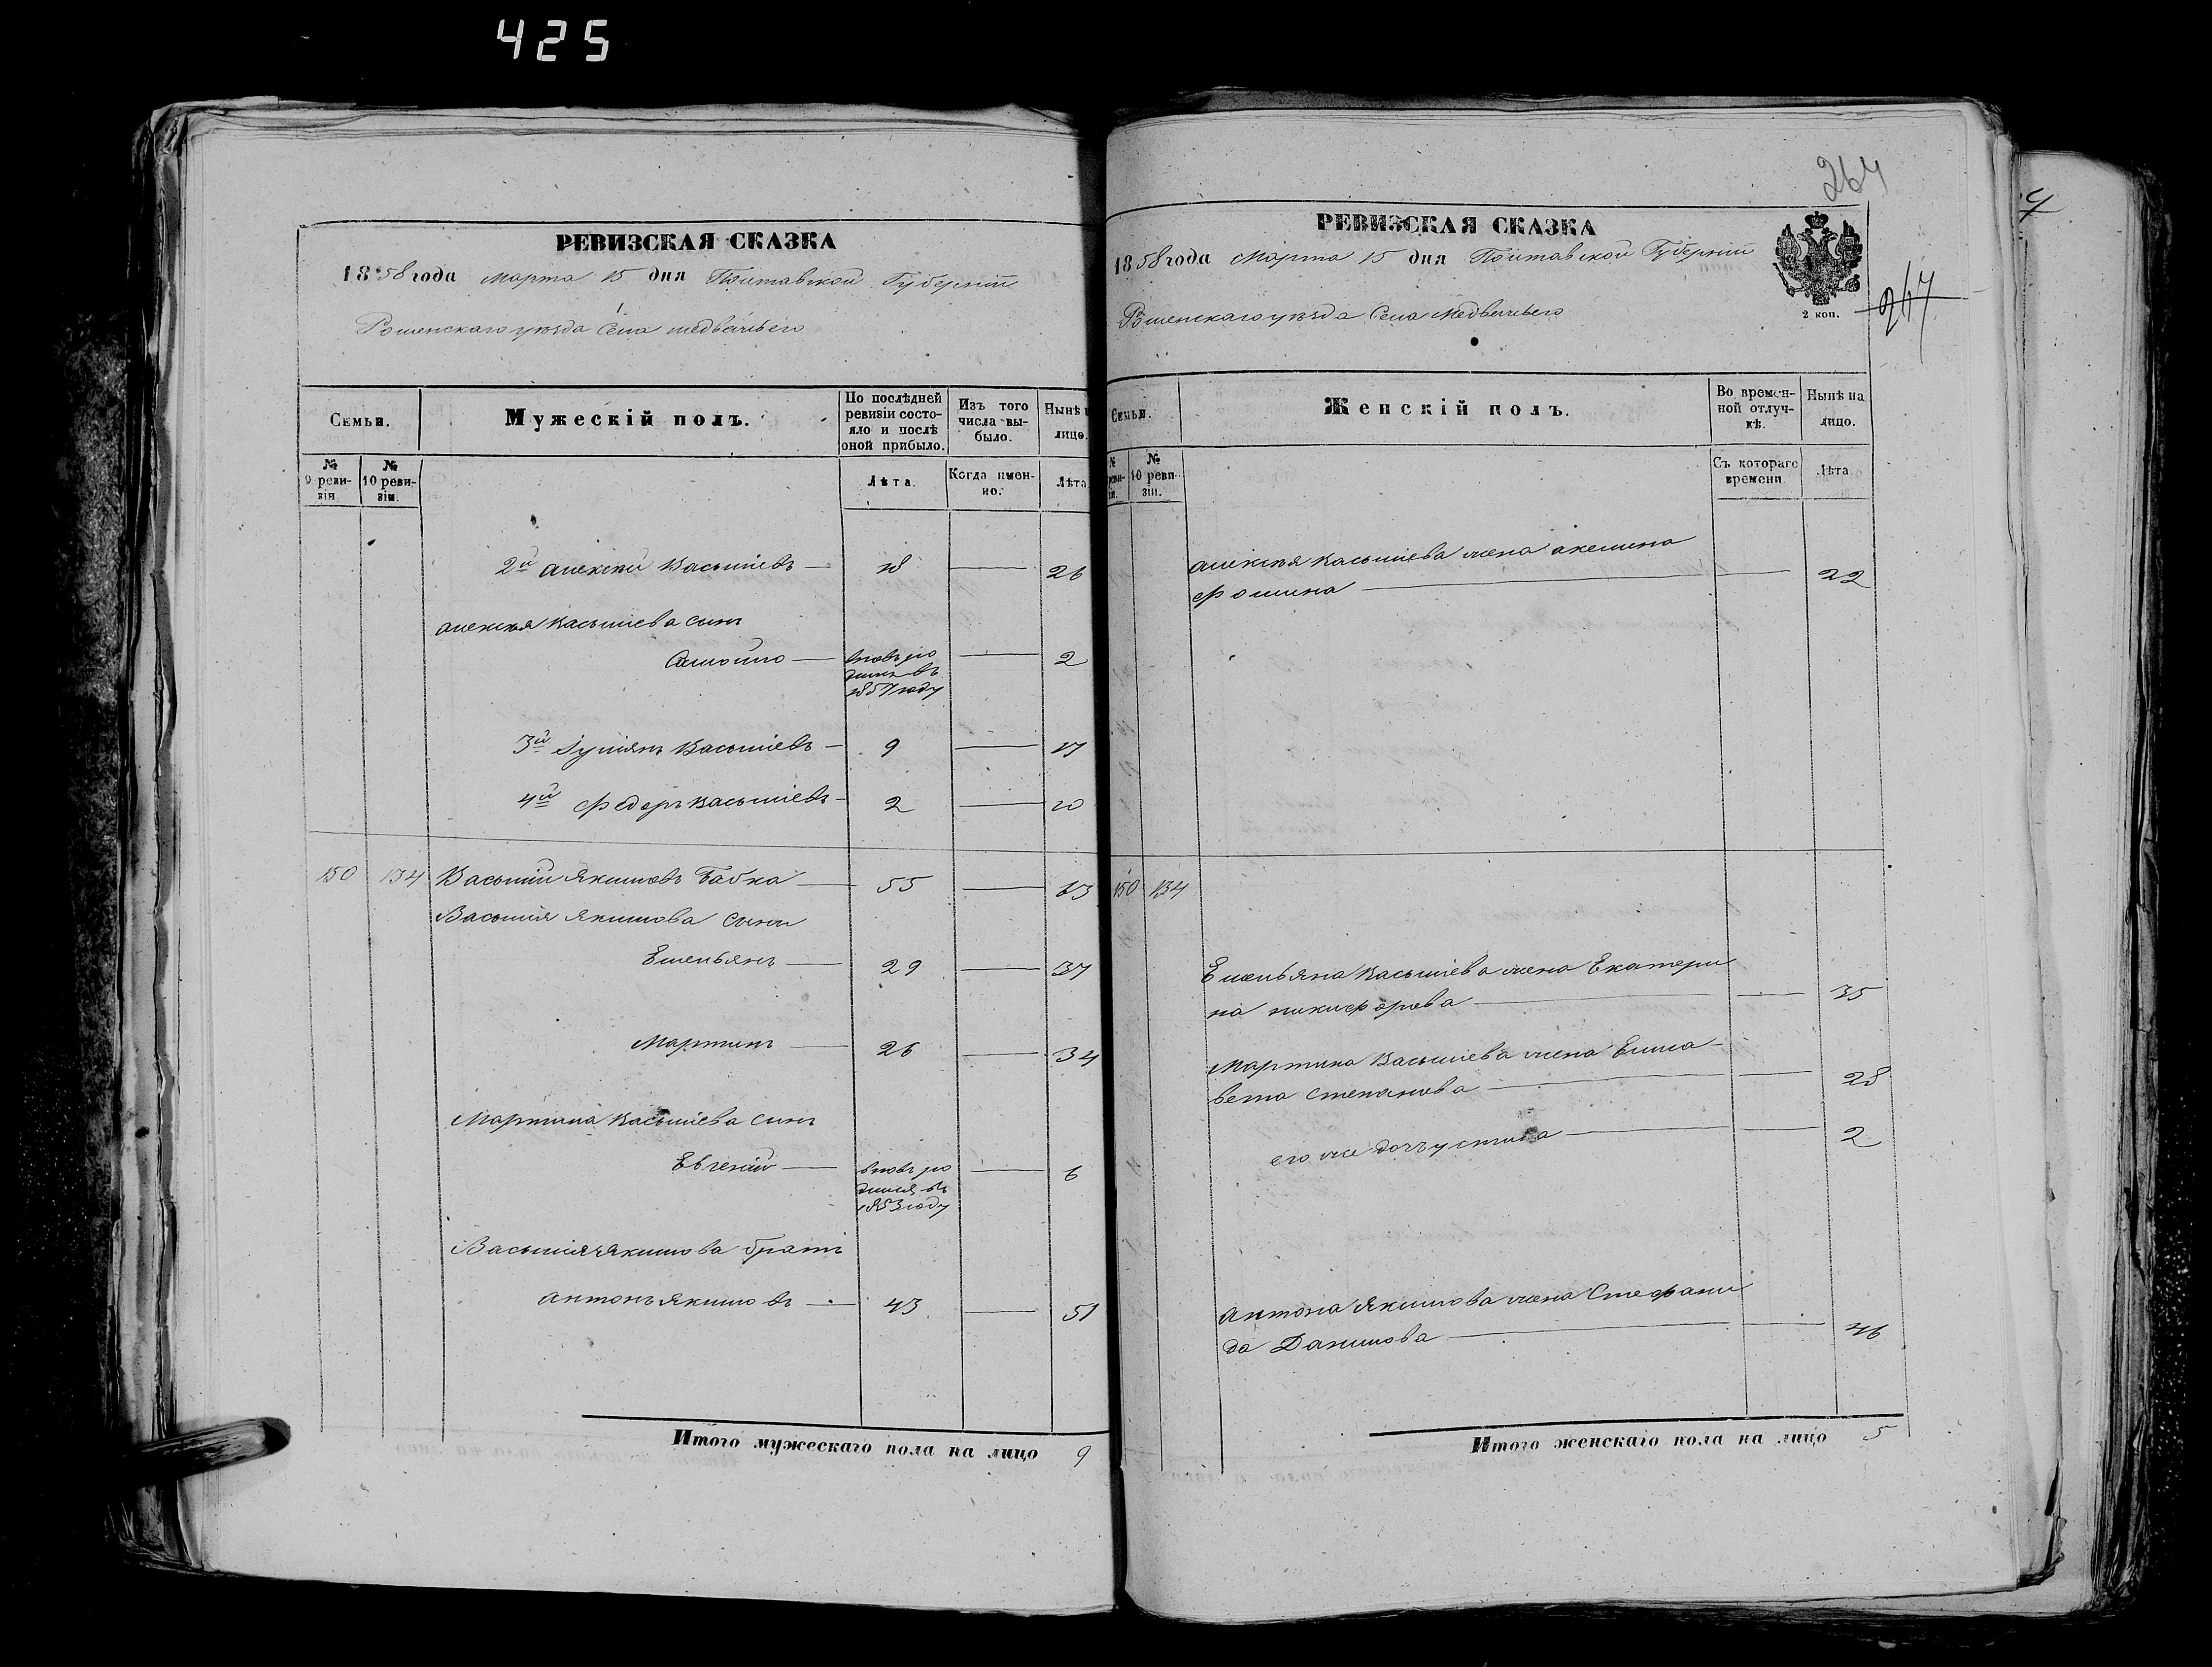 425
РЕВИЗСКАЯ СКАЗКА
1858 года Марта 15 дня Полтавской Губерніи
Роменскаго уѣзда Села Медвежьего
Семьи.
Мужескій полъ.
По послѣдней ревизіи состояло и послѣ оной прибыло.
Изъ того числа выбыло.
Нынѣ н
лицо.
№ 9 ревизіи
№ 10 ревизіи.
Лѣта.
Когда именно.
Лѣта
2й Алексѣй Васильевъ — 18 — 26
Алексѣя Васильева сынъ
Самойло — вновь ро
дился въ
1857 году — 2
3й Іулiянъ Васильевъ — 9 — 17
4й Федоръ Васильевъ — 2 — 10
150 134 Василій Якимовъ Бабка — 55 — 63
Василія Якимова сыны
Емельянъ — 29 — 37
Мартинъ — 26 — 34
Мартина Васильева сынъ
Евгеній — вновь ро
дился въ
1853 году — 6
Василія Якимова братъ
Антонъ Якимовъ — 43 — 51
Итого мужескаго пола на лицо 9
264
РЕВИЗСКАЯ СКАЗКА
1858 года Марта 15 дня Полтавской Губерніи
Роменскаго уѣзда Села Медвежьего
2 коп.
Семьи.
Женскій полъ.
Во временной отлучкѣ.
Нынѣ на лицо.
№ 10 ревизіи.
Съ котораго времени
Лѣта
Алексѣя Васильева жена Акелина
Фомина — — 22
150 134
Емельяна Васильева жена Екатери
на Никифорова — — 35
Мартина Васильева жена Елиса-
вета Степанова — — 28
его же дочь Устина — — 2
Антона Якимова жена Стефани
да Данилова — — 46
Итого женскаго пола на лицо 5